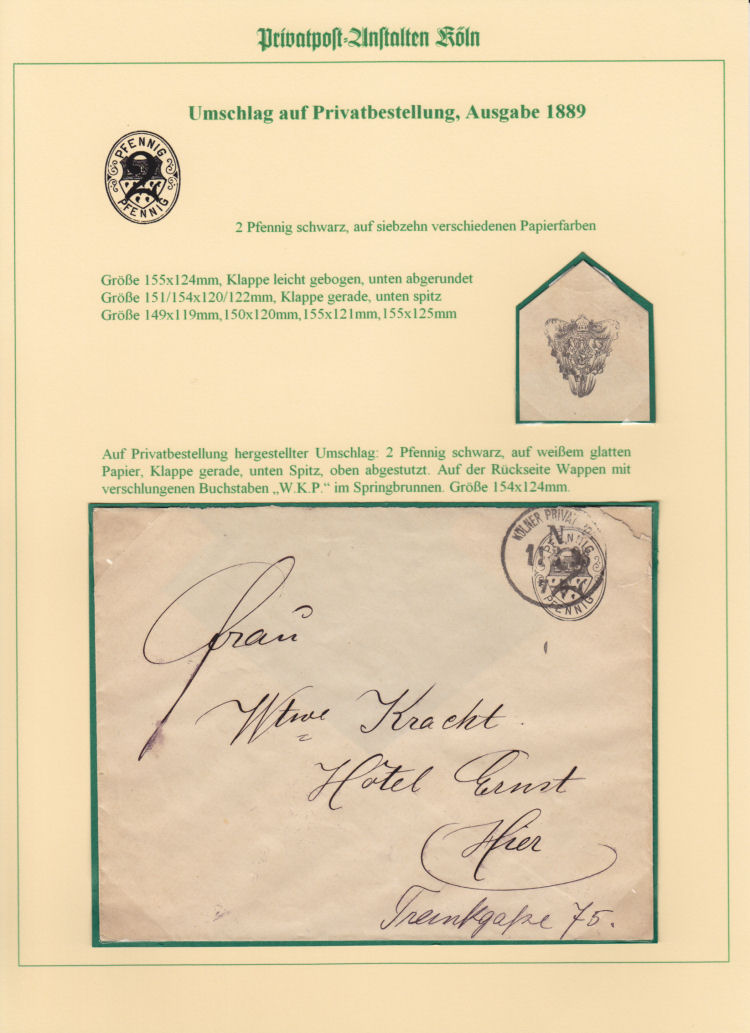 Privatpost-Anstalten Köln
Umschlag auf Privatbestellung, Ausgabe 1889
PFENNIG
2
PFENNIG
2 Pfennig schwarz, auf siebzehn verschiedenen Papierfarben
Größe 155x124mm, Klappe leicht gebogen, unten abgerundet
Größe 151/154x120/122mm, Klappe gerade, unten spitz
Größe 149x119mm,150x120mm,155x121mm,155x125mm
Auf Privatbestellung hergestellter Umschlag: 2 Pfennig schwarz, auf weißem glatten
Papier, Klappe gerade, unten Spitz, oben abgestutzt. Auf der Rückseite Wappen mit
verschlungenen Buchstaben „W.K.P.“ im Springbrunnen. Größe 154x124mm.
KÖLNER PRIVAT
N
PFENNIG
2
PFENNIG
Frau
Wtwe Kracht
Hôtel Ernst
Hier
75.